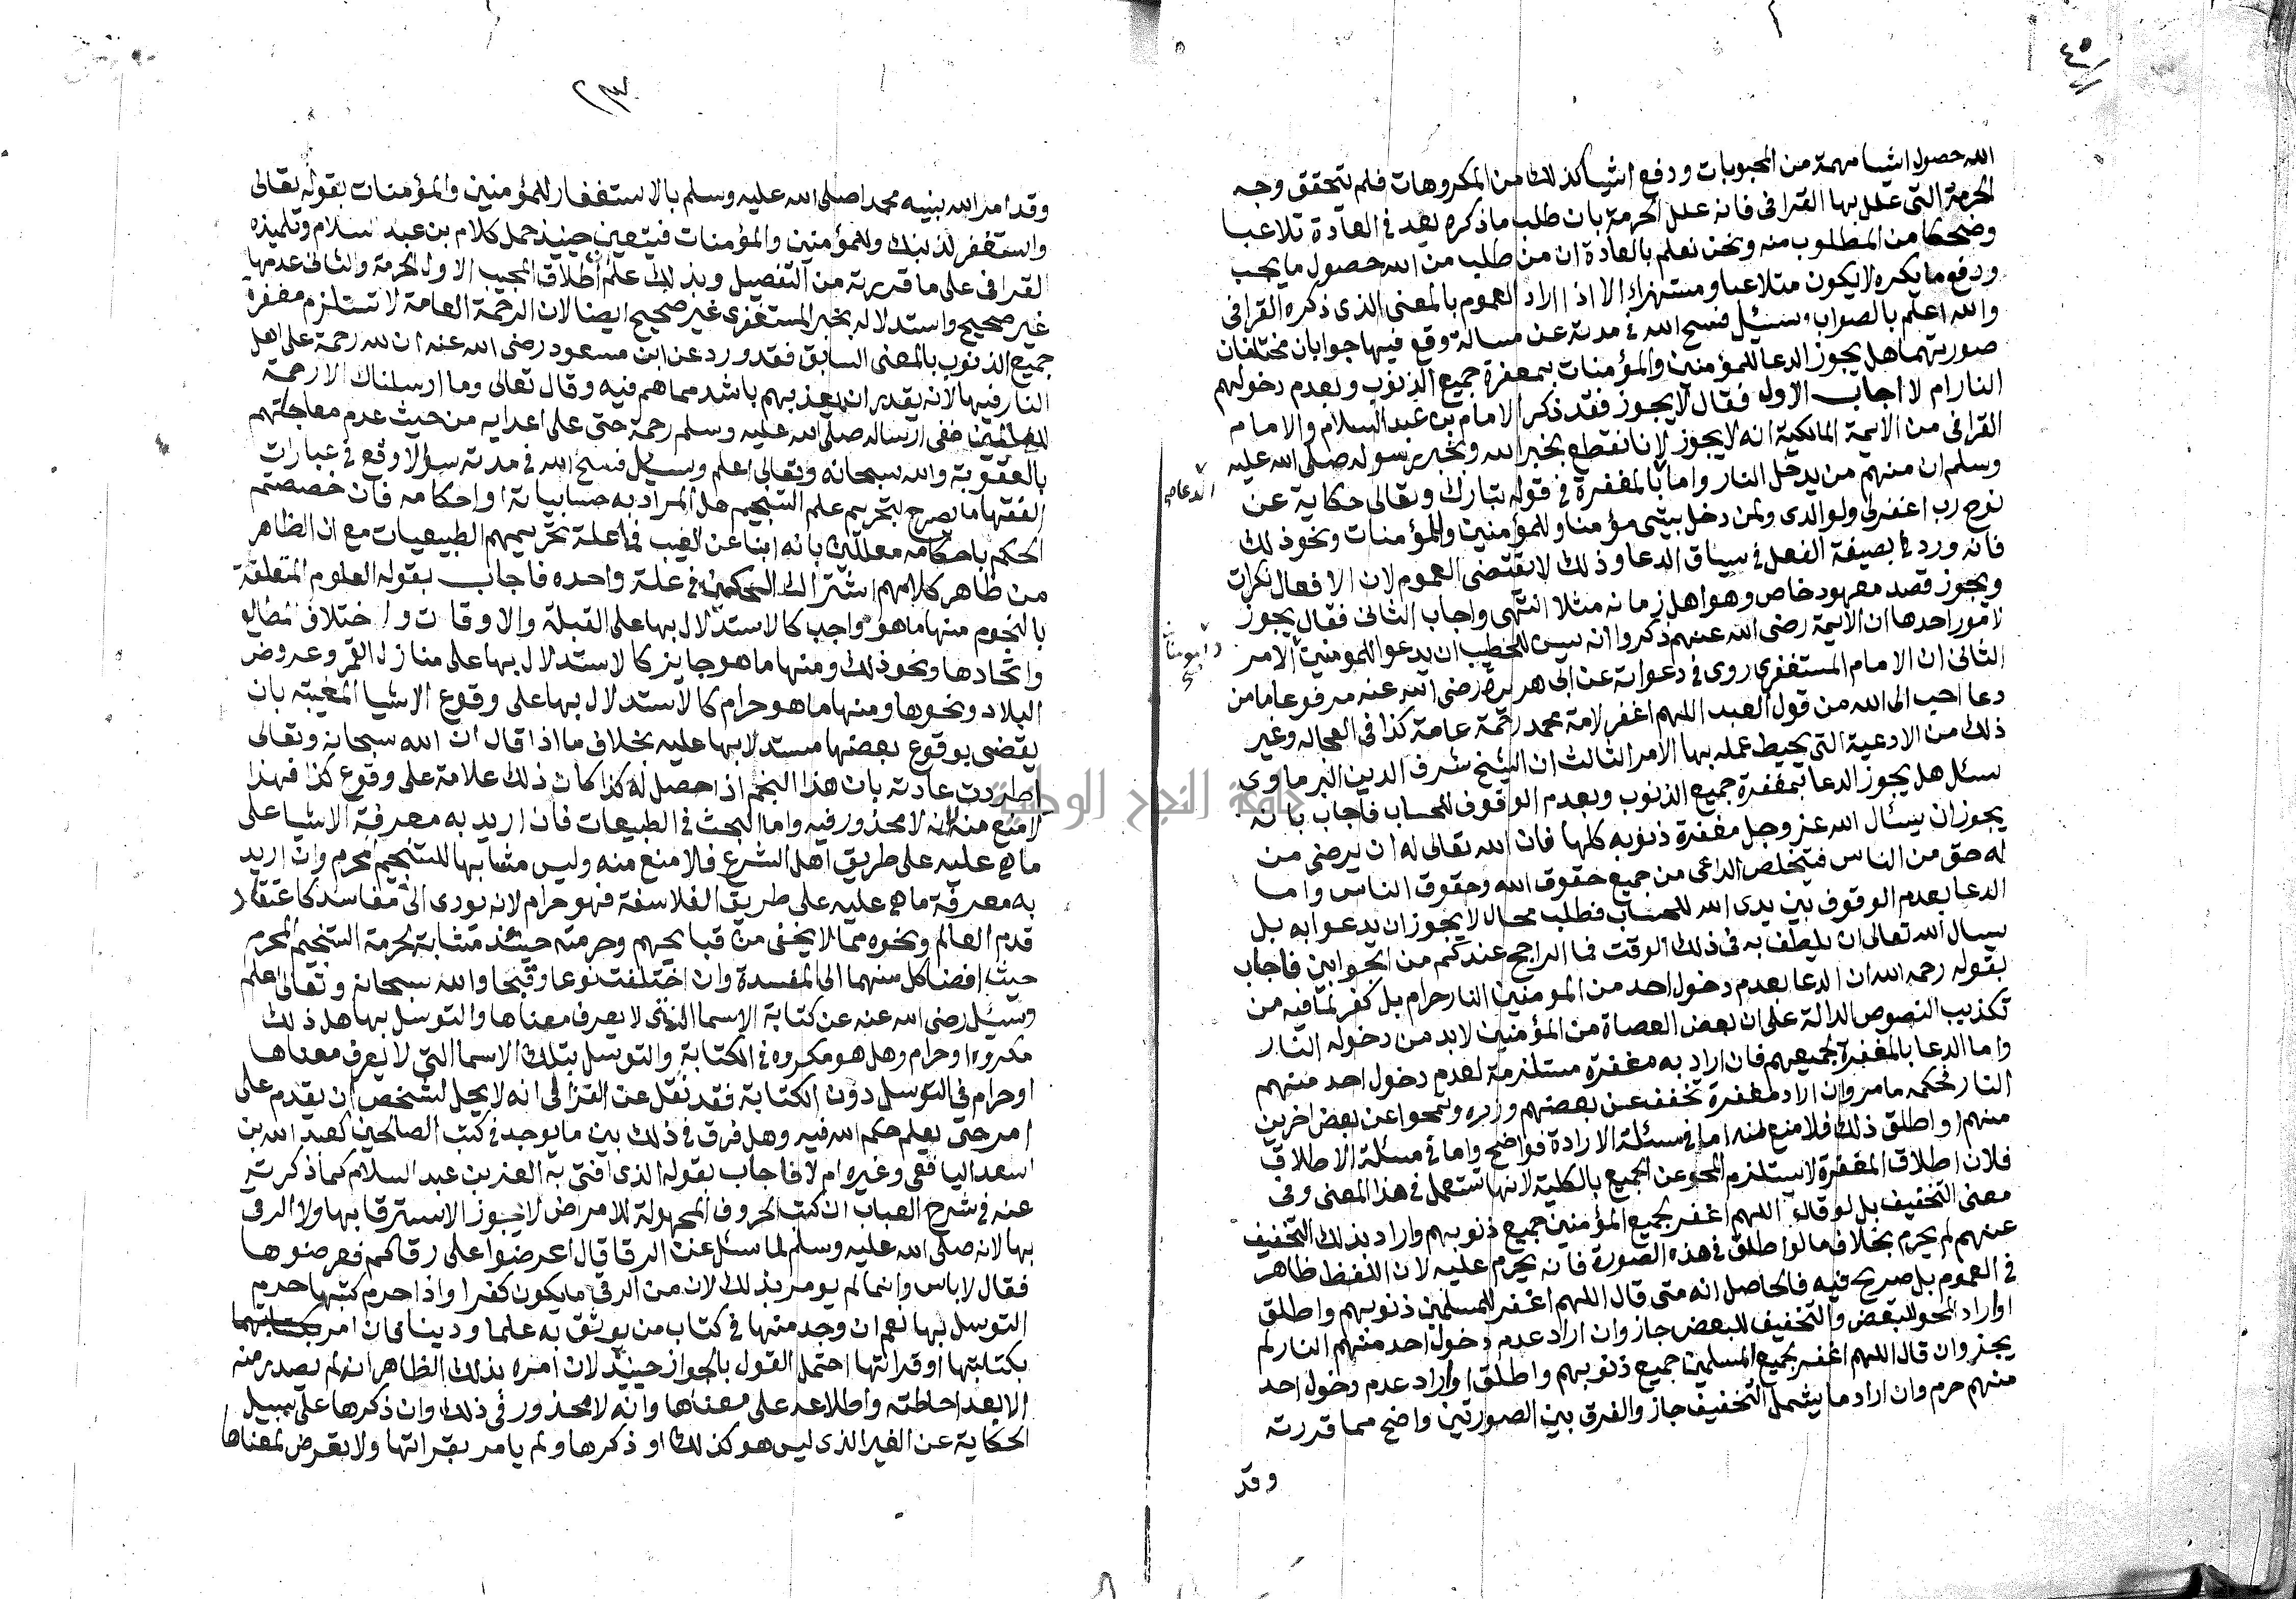 الله حصول اشيا مهمة من المحبوبات ودفع اشيا كذلك من المكروهات فلم يتحقق وجه
الحرمة التى علل بها القرافى فانه علل الحرمة بان طلب ما ذكره يعد فى العادة تلاعبا
وضحكا من المطلوب منه ونحن نعلم بالعادة ان من طلب من الله حصول ما يحب
ودفع ما يكره لا يكون متلاعبا ومستهزا الا اذا اراد العموم بالمعنى الذى ذكره القرافى
والله اعلم بالصواب وسئل فسح الله فى مدته عن مسالة وقع فيها جوابان مختلفان
صورتهما هل يجوز الدعا للمؤمنين والمؤمنات بمغفرة جميع الذنوب وبعدم دخولهم
النار ام لا اجاب الاول فقال لا يجوز فقد ذكر الامام بن عبد السلام والامام
القرافى من الايمة المالكية انه لا يجوز لانا نقطع بخبر الله وبخبر رسوله صلى الله عليه
وسلم ان منهم من يدخل النار واما بالمغفرة فى قوله تبارك وتعالى حكاية عن
الدعا صح
نوح رب اغفرلى ولوالدى ولمن دخل بيتى مؤمنا وللمؤمنين والمؤمنات ونحو ذلك
فانه ورد بصيغة الفعل فى سياق الدعا وذلك لا يقتضى العموم لان الافعال نكرات
ويجوز قصد معهود خاص وهو اهل زمانه مثلا انتهى واجاب الثانى فقال يجوز
لامور احدها ان الايمة رضى الله عنهم ذكروا انه يسن للخطيب ان يدعو للمومنين الامر
الثانى ان الامام المستغفرى روى فى دعواته عن ابى هريرة رضى الله عنه مرفوعا ما من
دعا احب الى الله من قول العبد اللهم اغفر لامة محمد رحمة عامة كذا فى العجاله وغير
ذلك من الادعية التى يحيط عمله بها الامر الثالث ان الشيخ شرف الدين البرماوى
سئل هل يجوز الدعا بمغفرة جميع الذنوب وبعدم الوقوف للحساب فاجاب بانه
يجوز ان يسئال الله عز وجل مغفرة ذنوبه كلها فان الله تعالى له ان يرضى من
له حق من الناس فتخلص الداعى من جميع حقوق الله وحقوق الناس واما
الدعا بعدم الوقوف بين يدى الله للحساب فطلب محال لا يجوز ان يدعوا به بل
يسال الله تعالى ان يلطف به فى ذلك الوقت فما الراجح عندكم من الجوابين فاجاب
بقوله رحمه الله ان الدعا بعدم دخول احد من المومنين النار حرام بل كفر لما فيه من
تكذيب النصوص الدالة على ان بعض العصاة من المؤمنين لا بد من دخوله النار
واما الدعا بالمغفرة لجميعهم فان اراد به مغفرة مستلزمة لعدم دخول احد منهم
النار فحكمه ما مر وان اراد مغفرة تخفف عن بعضهم وزره وتمحوا عن بعض اخرين
منهم او اطلق ذلك فلا منع منه اما فى مسئلة الارادة فواضح واما فى مسئلة الاطلاق
فلان اطلاق المغفرة لا يستلزم المحو عن الجميع بالكلية لانها تستعمل فى هذا المعنى وفى
معنى التخفيف بل لو قال اللهم اغفر لجميع المؤمنين جميع ذنوبهم واراد بذلك التخفيف
عنهم لم يحرم بخلاف ما لو اطلق فى هذه الصورة فانه يحرم عليه لان اللفظ ظاهر
فى العموم بل صريح فيه فالحاصل انه متى قال اللهم اغفر للمسلمين ذنوبهم واطلق
او اراد المحو للبعض والتخفيف للبعض جاز وان اراد عدم دخول احد منهم النار لم
يجز وان قال اللهم اغفر لجميع المسلمين جميع ذنوبهم واطلق او اراد عدم دخول احد
منهم حرم وان اراد ما يشمل التخفيف جاز والفرق بين الصورتين واضح مما قررته
وقد
٢٣
وقد امر الله نبيه محمدا صلى الله عليه وسلم بالاستغفار للمؤمنين والمؤمنات بقوله تعالى
واستغفر لذنبك وللمؤمنين والمؤمنات فيتعين حينيذ حمل كلام بن عبد السلام وتلميذه
القرافى على ما قررته من التفصيل وبذلك علم اطلاق المجيب الاول الحرمة والثانى عدمها
غير صحيح واستدلاله بخبر المستغفرى غير صحيح ايضا لان الرحمة العامة لا تستلزم مغفرة
جميع الذنوب بالمعنى السابق فقد ورد عن ابن مسعود رضى الله عنه ان لله رحمة على اهل
النار فيها لانه يقدر ان يعذبهم باشد مما هم فيه وقال تعالى وما ارسلناك الا رحمة
للعالمين ففى ارساله صلى الله عليه وسلم رحمة حتى على اعدايه من حيث عدم معاجلتهم
بالعقوبة والله سبحانه وتعالى اعلم وسيل فسح الله فى مدته سؤالا وقع فى عبارات
الفقها ما يصرح بتحريم علم التنجيم هل المراد به حسابياته او احكامه فان خصصتم
الحكم باحكامه معللين بانه انبا عن الغيب فما علة تحريمهم الطبيعيات مع ان الظاهر
من ظاهر كلامهم اشتراك الحكمين فى علة واحده فاجاب بقوله العلوم المتعلقة
بالنجوم منها ما هو واجب كالاستدلال بها على القبلة والاوقات واختلاف المطالع
واتحادها ونحو ذلك ومنها ما هو جايز كالاستدلال بها على منازل القمر وعروض
البلاد ونحوها ومنها ما هو حرام كالاستدلال بها على وقوع الاشيا المغيبة بان
يقضى بوقوع بعضها مستدلا بها عليه بخلاف ما اذا قال ان الله سبحانه وتعالى
اطردت عادته بان هذا النجم اذا حصل له كذا كان ذلك علامة على وقوع كذا فهذا
لا منع منه لانه لا محذور فيه واما البحث فى الطبيعات فان اريد به معرفة الاشيا على
ما هى عليه على طريق اهل الشرع فلا منع منه وليس مشابها للتنجيم المحرم وان اريد
به معرفة ما هى عليه على طريق الفلاسفة فهو حرام لانه يودى الى مفاسد كاعتقاد
قدم العالم ونحوه مما لا يخفى من قبايحهم وحرمته حينئذ متشابة لحرمة التنجيم المحرم
حيث افضا كل منهما الى المفسدة وان اختلفت نوعا وقبحا والله سبحانه وتعالى اعلم
وسئل رضى الله عنه عن كتابة الاسما التى لا يعرف معناها والتوسل بها هل ذلك
مكروه او حرام وهل هو مكروه فى الكتابة والتوسل بتلك الاسما التى لا يعرف معناها
او حرام فى التوسل دون الكتابة فقد نقل عن الغزالى انه لا يحل لشخص ان يقدم على
امر حتى يعلم حكم الله فيه وهل فرق فى ذلك بين ما يوجد فى كتب الصالحين كعبد الله بن
اسعد اليافعى وغيره ام لا فاجاب بقوله الذى افتى به العز بن عبد السلام كما ذكرته
عنه فى شرح العباب ان كتب الحروف المجهولة للامراض لا يجوز الاسترقا بها ولا الرقى
بها لانه صلى الله عليه وسلم لما سئل عن الرقا قال اعرضوا على رقاكم فعرضوها
فقال لا باس وانما لم يومر بذلك لان من الرقى ما يكون كفرا واذا حرم كتبها حرم
التوسل بها نعم ان وجد منها فى كتاب من يوثق به علما ودينا فان امر
بكتابتها او قراتها احتمل القول بالجواز حينيذ لان امره بذلك الظاهر انه لم يصدر منه
الا بعد احاطته واطلاعه على معناها وانه لا محذور فى ذلك وان ذكرها على سبيل
الحكاية عن الغير الذى ليس هو كذلك او ذكرها ولم يامر بقراتها ولا تعرض لمعناها
جامعة النجاح الوطنية